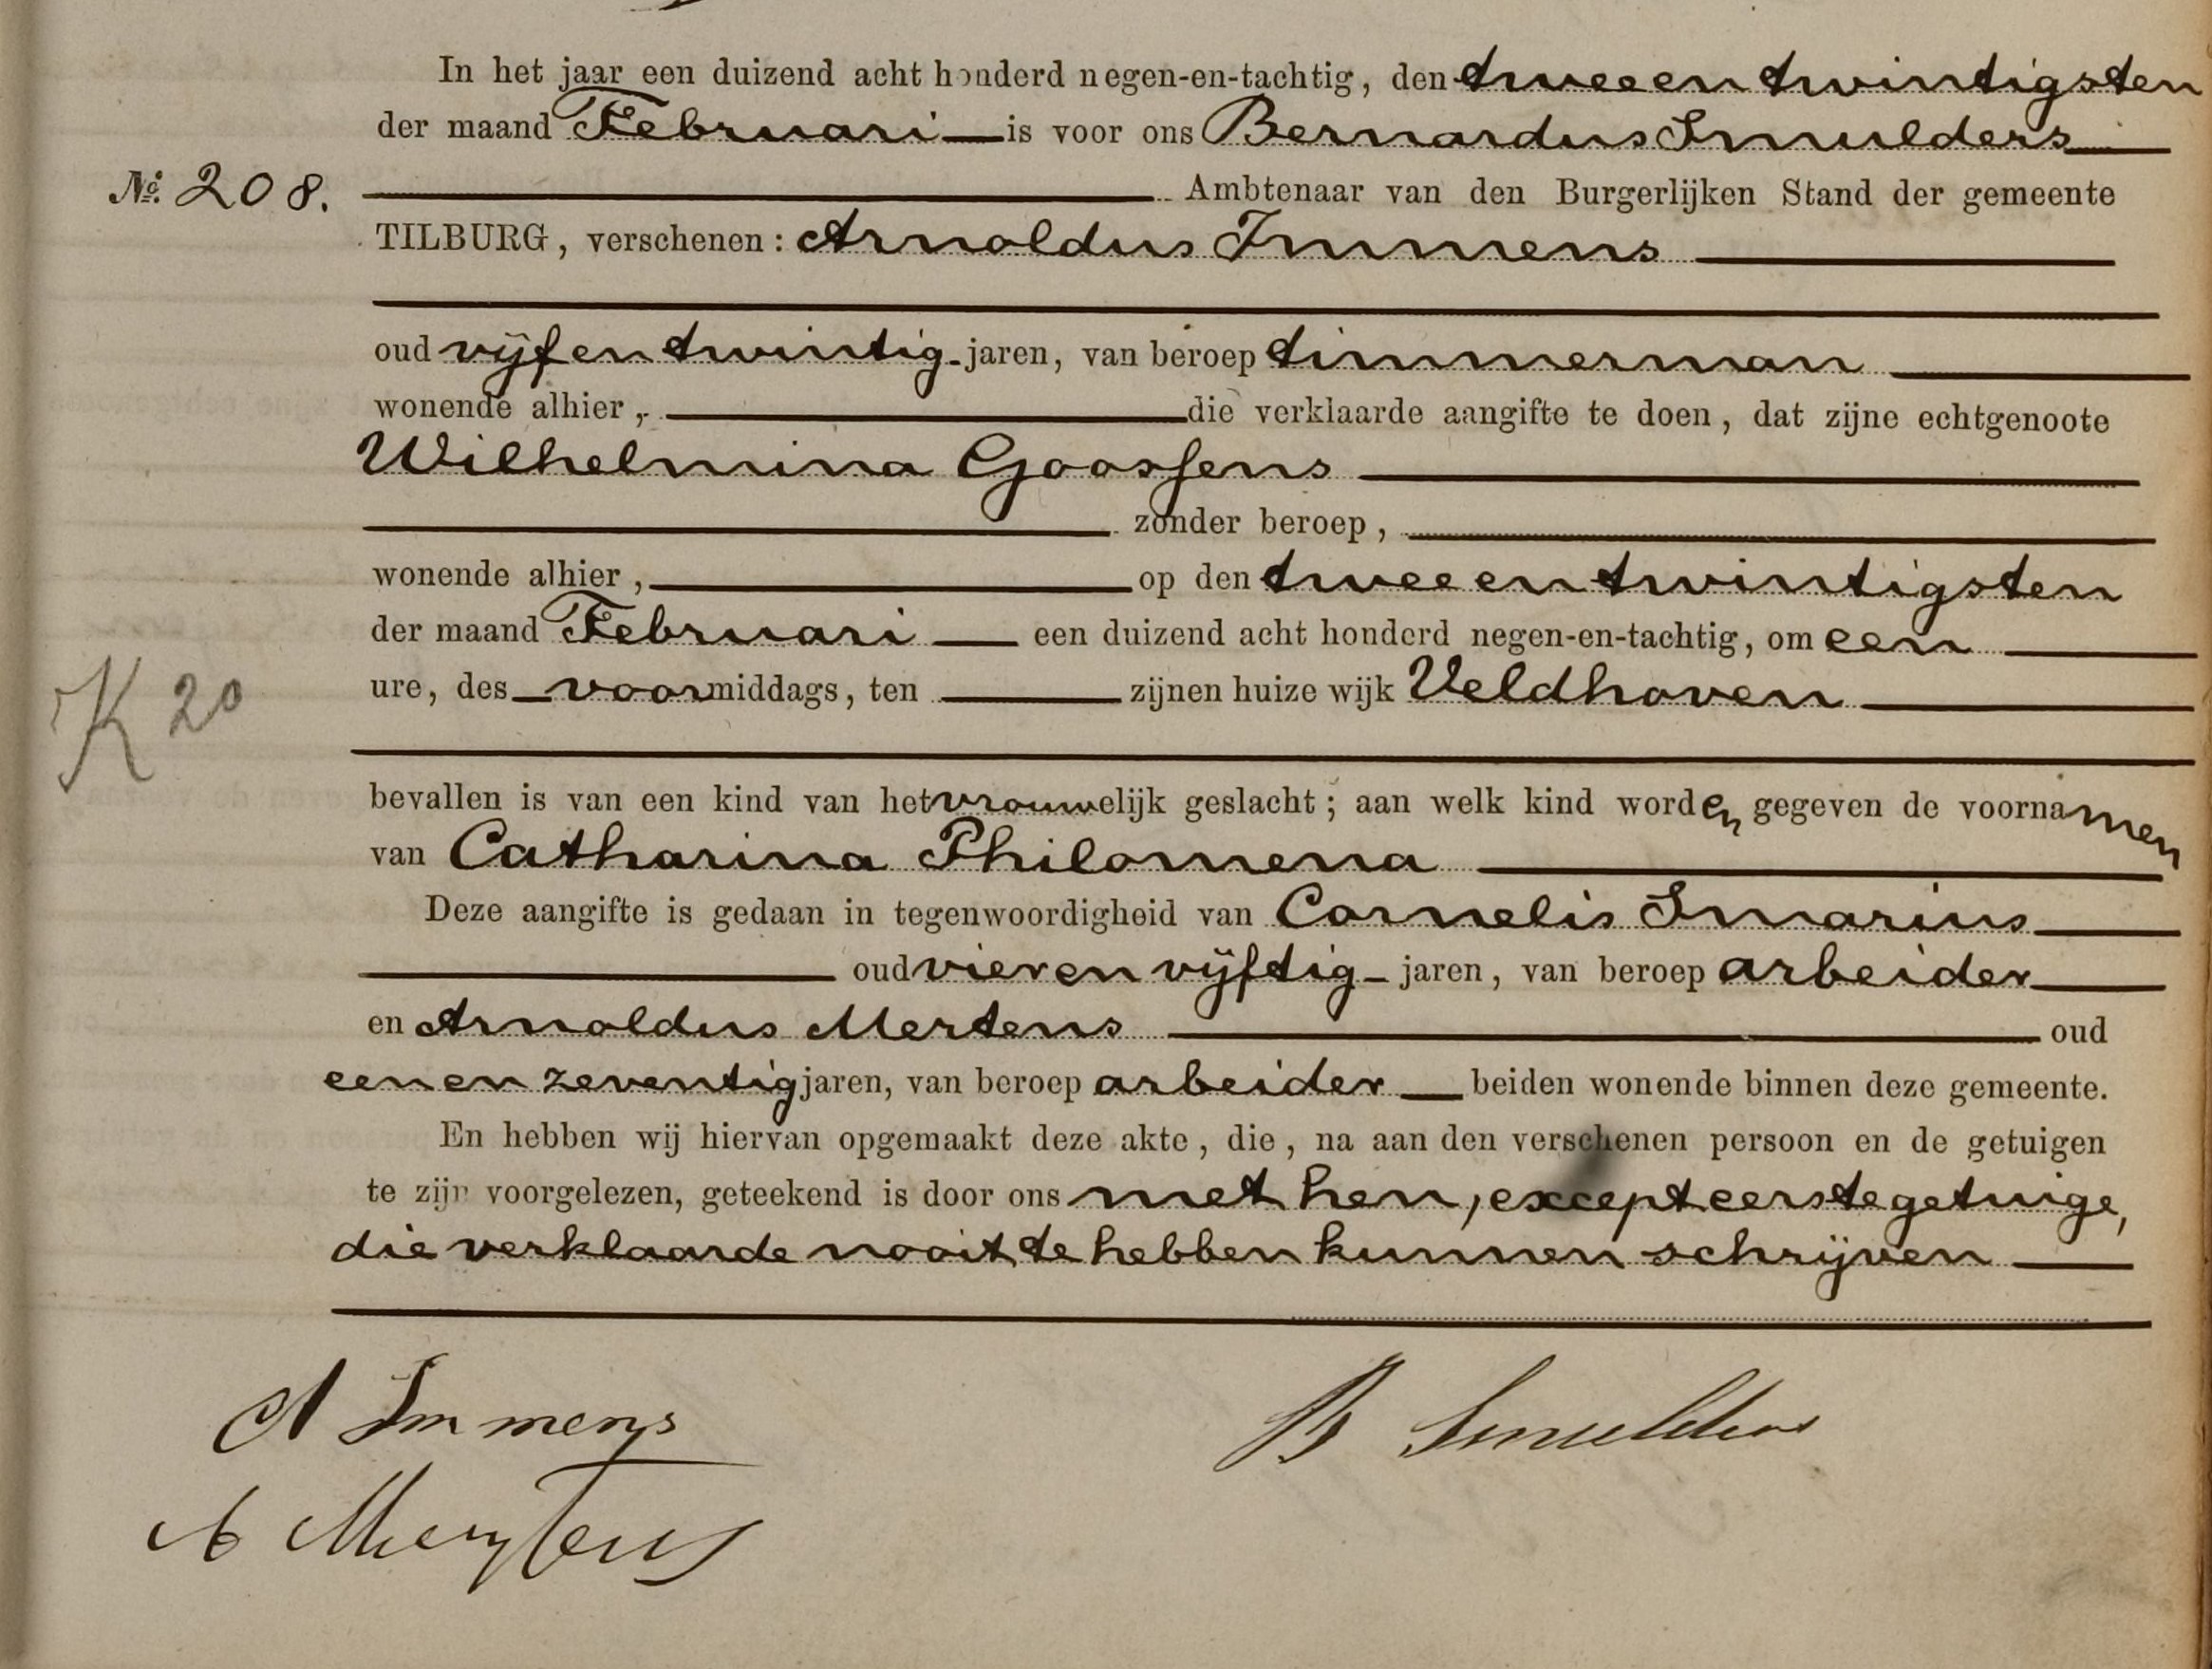 In het jaar een duizend acht honderd negen-en-tachtig, den tweeentwintigsten
der maand Februari is voor ons Bernardus Smulders
No. 208. Ambtenaar van den Burgerlijken Stand der gemeente
TILBURG, verschenen: Arnoldus Immens
oud vijfentwintig jaren, van beroep timmerman
wonende alhier, die verklaarde aangifte te doen, dat zijne echtgenoote
Wilhelmina Goossens
zonder beroep,
wonende alhier, op den tweeentwintigsten
der maand Februari een duizend acht honderd negen-en-tachtig, om een
K 20
ure, des voormiddags, ten zijnen huize wijk Veldhoven
bevallen is van een kind van het vrouwelijk geslacht; aan welk kind worden gegeven de voornamen
van Catharina Philomena
Deze aangifte is gedaan in tegenwoordigheid van Cornelis Smarius
oud vierenvijftig jaren, van beroep arbeider
en Arnoldus Mertens oud
eenenzeventig jaren, van beroep arbeider beiden wonende binnen deze gemeente.
En hebben wij hiervan opgemaakt deze akte, die, na aan den verschenen persoon en de getuigen
te zijn voorgelezen, geteekend is door ons met hen, except eerste getuige,
die verklaarde nooit te hebben kunnen schrijven
A Immens B Smulders
A Mertens